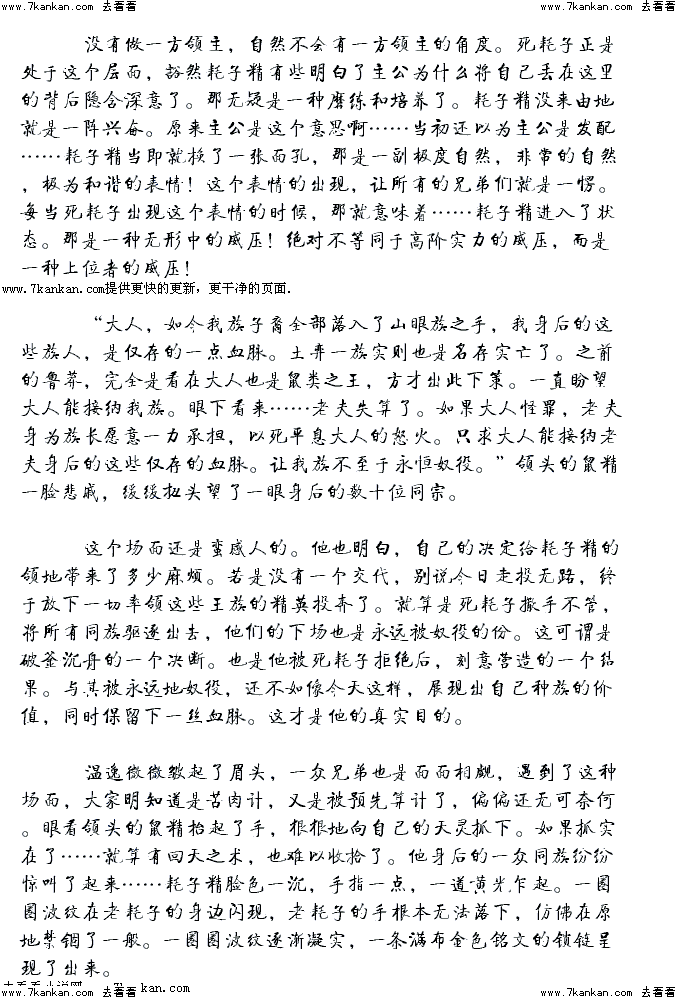 www.7kankan.com 去看看 www.7kankan.com 去看看
没有做一方领主，自然不会有一方领主的角度。死耗子正是
处于这个层面，豁然耗子精有些明白了主公为什么将自己丢在这里
的背后隐含深意了。那无疑是一种磨练和培养了。耗子精没来由地
就是一阵兴奋。原来主公是这个意思啊……当初还以为主公是发配
……耗子精当即就换了一张面孔，那是一副极度自然，非常的自然
，极为和谐的表情！这个表情的出现，让所有的兄弟们就是一愣。
每当死耗子出现这个表情的时候，那就意味着……耗子精进入了状
态。那是一种无形中的威压！绝对不等同于高阶实力的威压，而是
一种上位者的威压！
www.7kankan.com提供更快的更新，更干净的页面.
“大人，如今我族子裔全部落入了山眼族之手，我身后的这
些族人，是仅存的一点血脉。土弃一族实则也是名存实亡了。之前
的鲁莽，完全是看在大人也是鼠类之王，方才出此下策。一直盼望
大人能接纳我族。眼下看来……老夫失算了。如果大人怪罪，老夫
身为族长愿意一力承担，以死平息大人的怒火。只求大人能接纳老
夫身后的这些仅存的血脉。让我族不至于永恒奴役。”领头的鼠精
一脸悲戚，缓缓扭头望了一眼身后的数十位同宗。
这个场面还是蛮感人的。他也明白，自己的决定给耗子精的
领地带来了多少麻烦。若是没有一个交代，别说今日走投无路，终
于放下一切率领这些王族的精英投奔了。就算是死耗子撒手不管，
将所有同族驱逐出去，他们的下场也是永远被奴役的份。这可谓是
破釜沉舟的一个决断。也是他被死耗子拒绝后，刻意营造的一个结
果。与其被永远地奴役，还不如像今天这样，展现出自己种族的价
值，同时保留下一丝血脉。这才是他的真实目的。
温逸微微皱起了眉头，一众兄弟也是面面相觑，遇到了这种
场面，大家明知道是苦肉计，又是被预先算计了，偏偏还无可奈何
。眼看领头的鼠精抬起了手，狠狠地向自己的天灵抓下。如果抓实
在了……就算有回天之术，也难以收拾了。他身后的一众同族纷纷
惊叫了起来……耗子精脸色一沉，手指一点，一道黄光乍起。一圈
圈波纹在老耗子的身边闪现，老耗子的手根本无法落下，仿佛在原
地禁锢了一般。一圈圈波纹逐渐凝实，一条满布金色铭文的锁链呈
现了出来。
kan.com
www.7kankan.com 去看看 www.7kankan.com 去看看